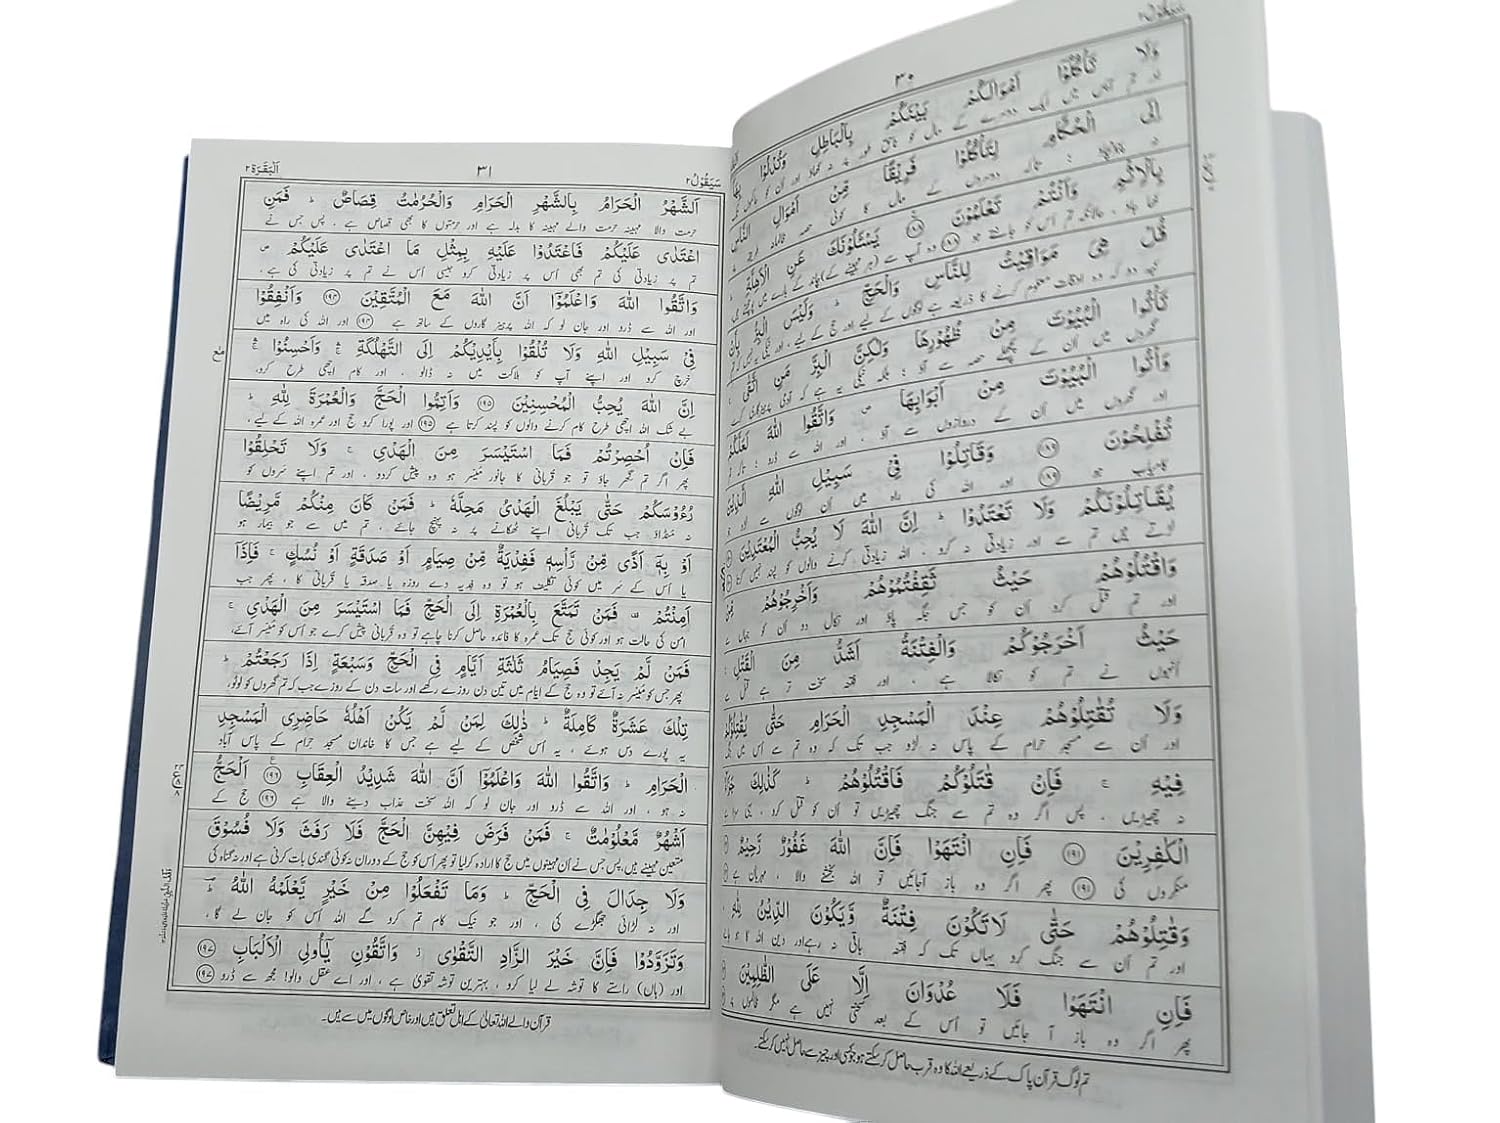 ٣٠
وَلَا تَأْكُلُوْٓا اَمْوَالَكُمْ بَيْنَكُمْ بِالْبَاطِلِ وَتُدْلُوْا بِهَآ
اِلَى الْحُكَّامِ لِتَأْكُلُوْا فَرِيْقًا مِّنْ اَمْوَالِ النَّاسِ
بِالْاِثْمِ وَاَنْتُمْ تَعْلَمُوْنَ ﴿۱۸۸﴾ يَسْـَٔلُوْنَكَ عَنِ الْاَهِلَّةِ ط
قُلْ هِيَ مَوَاقِيْتُ لِلنَّاسِ وَالْحَجِّ ط وَلَيْسَ الْبِرُّ بِاَنْ
تَأْتُوا الْبُيُوْتَ مِنْ ظُهُوْرِهَا وَلٰكِنَّ الْبِرَّ مَنِ اتَّقٰى ج
وَأْتُوا الْبُيُوْتَ مِنْ اَبْوَابِهَا ص وَاتَّقُوا اللّٰهَ لَعَلَّكُمْ
اور گھروں میں اُن کے دروازوں سے آؤ ، اور اللہ سے ڈرو ؛ تاکہ
تُفْلِحُوْنَ ﴿۱۸۹﴾ وَقَاتِلُوْا فِيْ سَبِيْلِ اللّٰهِ الَّذِيْنَ
کامیاب ہو ﴿۱۸۹﴾ اور اللہ کی راہ میں اُن لوگوں سے لڑو جو
يُقَاتِلُوْنَكُمْ وَلَا تَعْتَدُوْا ط اِنَّ اللّٰهَ لَا يُحِبُّ الْمُعْتَدِيْنَ
لڑتے ہیں تم سے اور زیادتی نہ کرو ، اللہ زیادتی کرنے والوں کو پسند نہیں کرتا
وَاقْتُلُوْهُمْ حَيْثُ ثَقِفْتُمُوْهُمْ وَاَخْرِجُوْهُمْ مِّنْ
اور تم قتل کرو اُن کو جس جگہ پاؤ اور نکال دو اُن کو جہاں سے
حَيْثُ اَخْرَجُوْكُمْ وَالْفِتْنَةُ اَشَدُّ مِنَ الْقَتْلِ ج
اُنہوں نے تم کو نکالا ہے ، اور فتنہ سخت تر ہے قتل سے
وَلَا تُقٰتِلُوْهُمْ عِنْدَ الْمَسْجِدِ الْحَرَامِ حَتّٰى يُقٰتِلُوْكُمْ
اور اُن سے مسجد حرام کے پاس نہ لڑو جب تک کہ وہ تم سے اُس میں جنگ
فِيْهِ ج فَاِنْ قٰتَلُوْكُمْ فَاقْتُلُوْهُمْ ط كَذٰلِكَ جَزَآءُ
نہ چھیڑیں ، پس اگر وہ تم سے جنگ چھیڑیں تو اُن کو قتل کرو ، یہی سزا ہے
الْكٰفِرِيْنَ ﴿۱۹۱﴾ فَاِنِ انْتَهَوْا فَاِنَّ اللّٰهَ غَفُوْرٌ رَّحِيْمٌ
منکروں کی ﴿۱۹۱﴾ پھر اگر وہ باز آجائیں تو اللہ بخشنے والا ، مہربان ہے
وَقٰتِلُوْهُمْ حَتّٰى لَا تَكُوْنَ فِتْنَةٌ وَّيَكُوْنَ الدِّيْنُ لِلّٰهِ ط
اور تم اُن سے جنگ کرو یہاں تک کہ فتنہ باقی نہ رہے اور دین اللہ کا ہو جائے
فَاِنِ انْتَهَوْا فَلَا عُدْوَانَ اِلَّا عَلَى الظّٰلِمِيْنَ
پھر اگر وہ باز آ جائیں تو اُس کے بعد سختی نہیں ہے مگر ظالموں پر
تم لوگ قرآن پاک کے ذریعے اللہ کا وہ قرب حاصل کر سکتے ہو جو کسی اور چیز سے حاصل نہیں کر سکتے۔
سَيَقُوْلُ ٢
٣١
اَلْبَقَرَة ٢
اَلشَّهْرُ الْحَرَامُ بِالشَّهْرِ الْحَرَامِ وَالْحُرُمٰتُ قِصَاصٌ ط فَمَنِ
حرمت والا مہینہ حرمت والے مہینہ کا بدلہ ہے اور حرمتوں کا بھی قصاص ہے ، پس جس نے
اعْتَدٰى عَلَيْكُمْ فَاعْتَدُوْا عَلَيْهِ بِمِثْلِ مَا اعْتَدٰى عَلَيْكُمْ ص
تم پر زیادتی کی تم بھی اُس پر زیادتی کرو جیسی اُس نے تم پر زیادتی کی ہے ،
وَاتَّقُوا اللّٰهَ وَاعْلَمُوْٓا اَنَّ اللّٰهَ مَعَ الْمُتَّقِيْنَ ﴿۱۹۴﴾ وَاَنْفِقُوْا
اور اللہ سے ڈرو اور جان لو کہ اللہ پرہیز گاروں کے ساتھ ہے ﴿۱۹۴﴾ اور اللہ کی راہ میں
فِيْ سَبِيْلِ اللّٰهِ وَلَا تُلْقُوْا بِاَيْدِيْكُمْ اِلَى التَّهْلُكَةِ وَاَحْسِنُوْا
خرچ کرو اور اپنے آپ کو ہلاکت میں نہ ڈالو ، اور کام اچھی طرح کرو،
اِنَّ اللّٰهَ يُحِبُّ الْمُحْسِنِيْنَ ﴿۱۹۵﴾ وَاَتِمُّوا الْحَجَّ وَالْعُمْرَةَ لِلّٰهِ ط
بے شک اللہ اچھی طرح کام کرنے والوں کو پسند کرتا ہے ﴿۱۹۵﴾ اور پورا کرو حج اور عمرہ اللہ کے لیے،
فَاِنْ اُحْصِرْتُمْ فَمَا اسْتَيْسَرَ مِنَ الْهَدْيِ ج وَلَا تَحْلِقُوْا
پھر اگر تم گھر جاؤ تو جو قربانی کا جانور میسّر ہو وہ پیش کردو ، اور تم اپنے سَروں کو
رُءُوْسَكُمْ حَتّٰى يَبْلُغَ الْهَدْيُ مَحِلَّهٗ ط فَمَنْ كَانَ مِنْكُمْ مَّرِيْضًا
نہ مُنڈاؤ جب تک قربانی اپنے ٹھکانے پر نہ پہنچ جائے ، تم میں سے جو بیمار ہو
اَوْ بِهٖٓ اَذًى مِّنْ رَّاْسِهٖ فَفِدْيَةٌ مِّنْ صِيَامٍ اَوْ صَدَقَةٍ اَوْ نُسُكٍ ج فَاِذَآ
یا اُس کے سَر میں کوئی تکلیف ہو تو وہ فدیہ دے روزہ یا صدقہ یا قربانی کا ، پھر جب
اَمِنْتُمْ فَمَنْ تَمَتَّعَ بِالْعُمْرَةِ اِلَى الْحَجِّ فَمَا اسْتَيْسَرَ مِنَ الْهَدْيِ ج
امن کی حالت ہو اور کوئی حج تک عمرہ کا فائدہ حاصل کرنا چاہے تو وہ قربانی پیش کرے جو اُس کو میسّر آئے،
فَمَنْ لَّمْ يَجِدْ فَصِيَامُ ثَلٰثَةِ اَيَّامٍ فِي الْحَجِّ وَسَبْعَةٍ اِذَا رَجَعْتُمْ ط
پھر جس کو میسّر نہ آئے تو وہ حج کے ایام میں تین دن روزے رکھے اور سات دن کے روزے جب کہ تم گھروں کو لوٹو،
تِلْكَ عَشَرَةٌ كَامِلَةٌ ط ذٰلِكَ لِمَنْ لَّمْ يَكُنْ اَهْلُهٗ حَاضِرِي الْمَسْجِدِ
یہ پورے دس ہوئے ، یہ اُس شخص کے لیے ہے جس کا خاندان مسجد حرام کے پاس آباد
الْحَرَامِ ط وَاتَّقُوا اللّٰهَ وَاعْلَمُوْٓا اَنَّ اللّٰهَ شَدِيْدُ الْعِقَابِ ﴿۱۹۶﴾ اَلْحَجُّ
نہ ہو ، اور اللہ سے ڈرو اور جان لو کہ اللہ سخت عذاب دینے والا ہے ﴿۱۹۶﴾ حج کے
اَشْهُرٌ مَّعْلُوْمٰتٌ ج فَمَنْ فَرَضَ فِيْهِنَّ الْحَجَّ فَلَا رَفَثَ وَلَا فُسُوْقَ
متعین مہینے ہیں، پس جس نے اِن مہینوں میں حج کا ارادہ کرلیا تو پھر اُس کو حج کے دوران نہ کوئی گندی بات کرنی ہے اور نہ گناہ کی
وَلَا جِدَالَ فِي الْحَجِّ ط وَمَا تَفْعَلُوْا مِنْ خَيْرٍ يَّعْلَمْهُ اللّٰهُ ط
اور نہ لڑائی جھگڑے کی ، اور جو نیک کام تم کرو گے اللہ اُس کو جان لے گا ،
وَتَزَوَّدُوْا فَاِنَّ خَيْرَ الزَّادِ التَّقْوٰى وَاتَّقُوْنِ يٰٓاُولِي الْاَلْبَابِ ﴿۱۹۷﴾
اور (ہاں) راستے کا توشہ لے لیا کرو ، بہترین توشہ تقویٰ ہے ، اور اے عقل والو! مجھ سے ڈرو ﴿۱۹۷﴾
قرآن والے اللہ تعالیٰ کے اہل تعلق ہیں اور خاص لوگوں میں سے ہیں۔